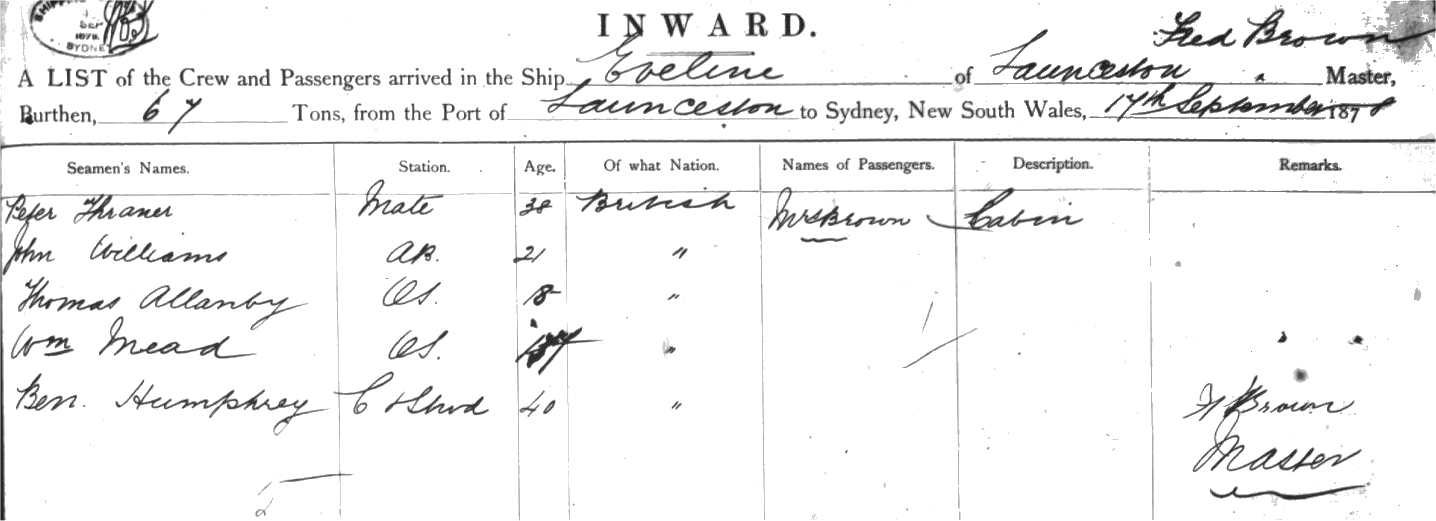 SHIPPING
SEP
1878
SYDNEY
INWARD.
Fred Brown
A LIST of the Crew and Passengers arrived in the Ship Eveline of Launceston Master,
Burthen, 67 Tons, from the Port of Launceston to Sydney, New South Wales, 17th September 1878
Seamen's Names. Station. Age. Of what Nation. Names of Passengers. Description. Remarks.
Peter Thraner Mate 38 British Mrs Brown Cabin
John Williams AB. 21 "
Thomas Allanby OS. 18 "
Wm Mead OS. "
Ben. Humphrey C & Stwd 40 " F Brown
Master